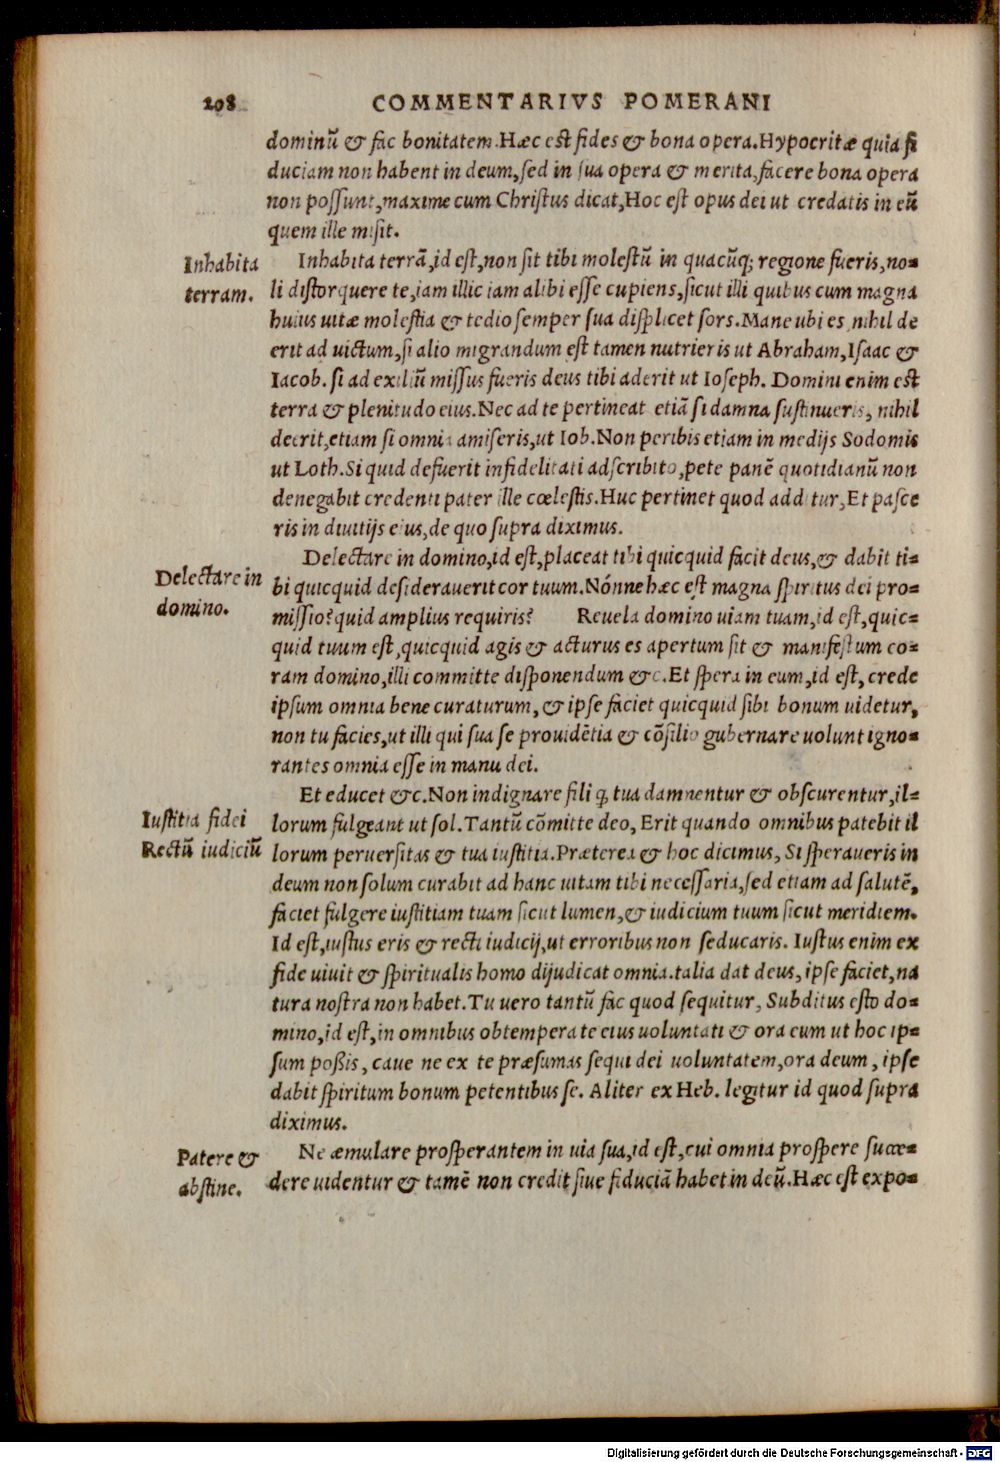 198 COMMENTARIVS POMERANI
dominũ & fac bonitatem.Hæc est fides & bona opera.Hypocritæ quia fi
duciam non habent in deum,sed in sua opera & merita,facere bona opera
non possunt,maxime cum Christus dicat,Hoc est opus dei ut credatis in eũ
quem ille misit.
Inhabita
terram.
Inhabita terrã,id est,non sit tibi molestũ in quacũq; regione fueris,no=
li distorquere te,iam illic iam alibi esse cupiens,sicut illi quibus cum magna
huius uitæ molestia & tedio semper sua displicet sors.Mane ubi es nihil de
erit ad uictum,si alio migrandum est tamen nutrieris ut Abraham,Isaac &
Iacob. si ad exiliũ missus fueris deus tibi aderit ut Ioseph. Domini enim est
terra & plenitudo eius.Nec ad te pertineat etiã si damna sustinueris, nihil
deerit,etiam si omnia amiseris,ut Iob.Non peribis etiam in medijs Sodomis
ut Loth.Si quid defuerit infidelitati adscribito,pete panẽ quotidianũ non
denegabit credenti pater ille cœlestis.Huc pertinet quod additur,Et pasce
ris in diuitijs eius,de quo supra diximus.
Delectare in
domino.
Delectare in domino,id est,placeat tibi quicquid facit deus,& dabit ti=
bi quicquid desiderauerit cor tuum.Nónne hæc est magna spiritus dei pro=
missio?quid amplius requiris? Reuela domino uiam tuam,id est,quic=
quid tuum est,quicquid agis & acturus es apertum sit & manifestum co=
ram domino,illi committe disponendum &c.Et spera in eum,id est, crede
ipsum omnia bene curaturum, & ipse faciet quicquid sibi bonum uidetur,
non tu facies,ut illi qui sua se prouidẽtia & cõsilio gubernare uolunt igno=
rantes omnia esse in manu dei.
Iustitia fidei
Rectũ iudiciũ
Et educet &c.Non indignare fili ꝙ tua damnentur & obscurentur,il=
lorum fulgeant ut sol.Tantũ cõmitte deo, Erit quando omnibus patebit il
lorum peruersitas & tua iustitia.Præterea & hoc dicimus, Si speraueris in
deum non solum curabit ad hanc uitam tibi necessaria,sed etiam ad salutẽ,
faciet fulgere iustitiam tuam sicut lumen,& iudicium tuum sicut meridiem.
Id est,iustus eris & recti iudicij,ut erroribus non seducaris. Iustus enim ex
fide uiuit & spiritualis homo dijudicat omnia.talia dat deus, ipse faciet,na
tura nostra non habet.Tu uero tantũ fac quod sequitur, Subditus esto do=
mino,id est,in omnibus obtempera te eius uoluntati & ora eum ut hoc ip=
sum poßis, caue ne ex te præsumas sequi dei uoluntatem,ora deum, ipse
dabit spiritum bonum petentibus se. Aliter ex Heb. legitur id quod supra
diximus.
Patere &
abstine.
Ne æmulare prosperantem in uia sua,id est,cui omnia prospere succe=
dere uidentur & tamẽ non credit siue fiduciã habet in deũ.Hæc est expo=
Digitalisierung gefördert durch die Deutsche Forschungsgemeinschaft - DFG